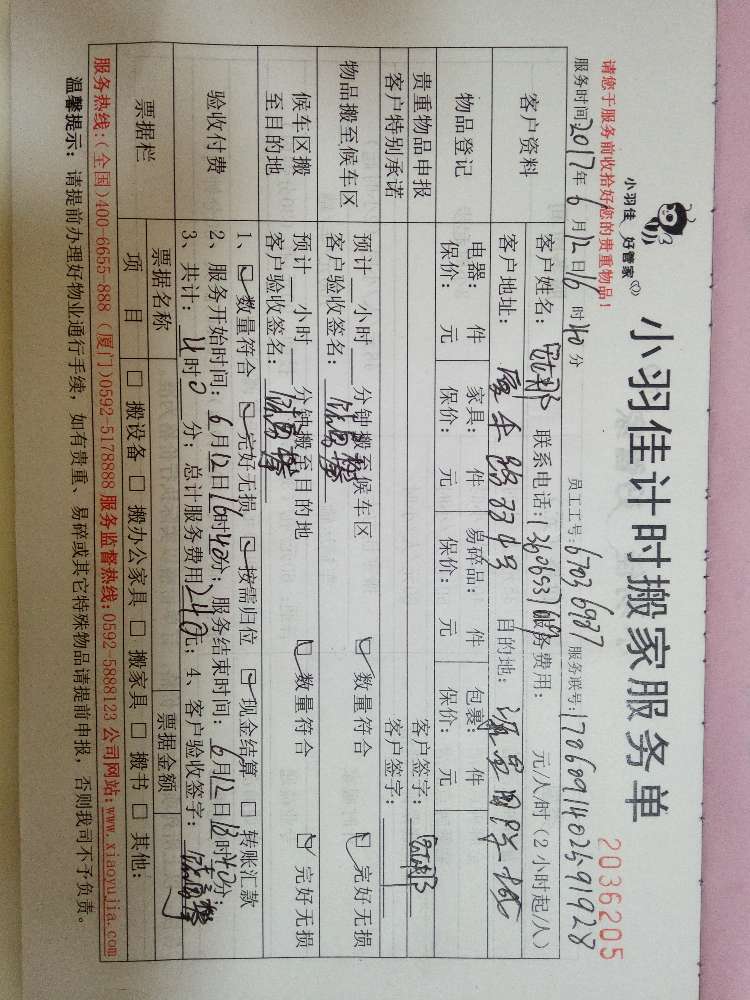 小羽佳 好管家
小羽佳计时搬家服务单
2036205
请您于服务前收拾好您的贵重物品!
员工工号:67036987 服务联号:170609140259 1928
服务时间:2017年6月12日16时40分
客户资料
客户姓名: 联系电话: 服务费用: 元/人/时(2小时起/人)
客户地址: 目的地:
物品登记
电器: 件 家具: 件 易碎品: 件 包裹: 件
保价: 元 保价: 元 保价: 元 保价: 元
贵重物品申报 客户签字:
客户特别承诺 客户签字:
物品搬至候车区
预计 小时 分钟搬至候车区 数量符合 完好无损
客户验收签名:
候车区搬至目的地
预计 小时 分钟搬至目的地 数量符合 完好无损
客户验收签名:
验收付费
1、数量符合 完好无损 按需归位 现金结算 □ 转账汇款
2、服务开始时间:6月12日16时40分;服务结束时间:6月12日18时40分;
3、共计:4时0分;总计服务费用240元;4、客户验收签字:
票据栏
票据名称 票据金额
项目 □ 搬设备 □ 搬办公家具 □ 搬家具 □ 搬书 □ 其他:
服务热线:(全国)400-6655-888 (厦门)0592-5178888 服务监督热线:0592-5888123 公司网站:www.xiaoyujia.com
温馨提示: 请提前办理好物业通行手续,如有贵重、易碎或其它特殊物品请提前申报,否则我司不予负责。